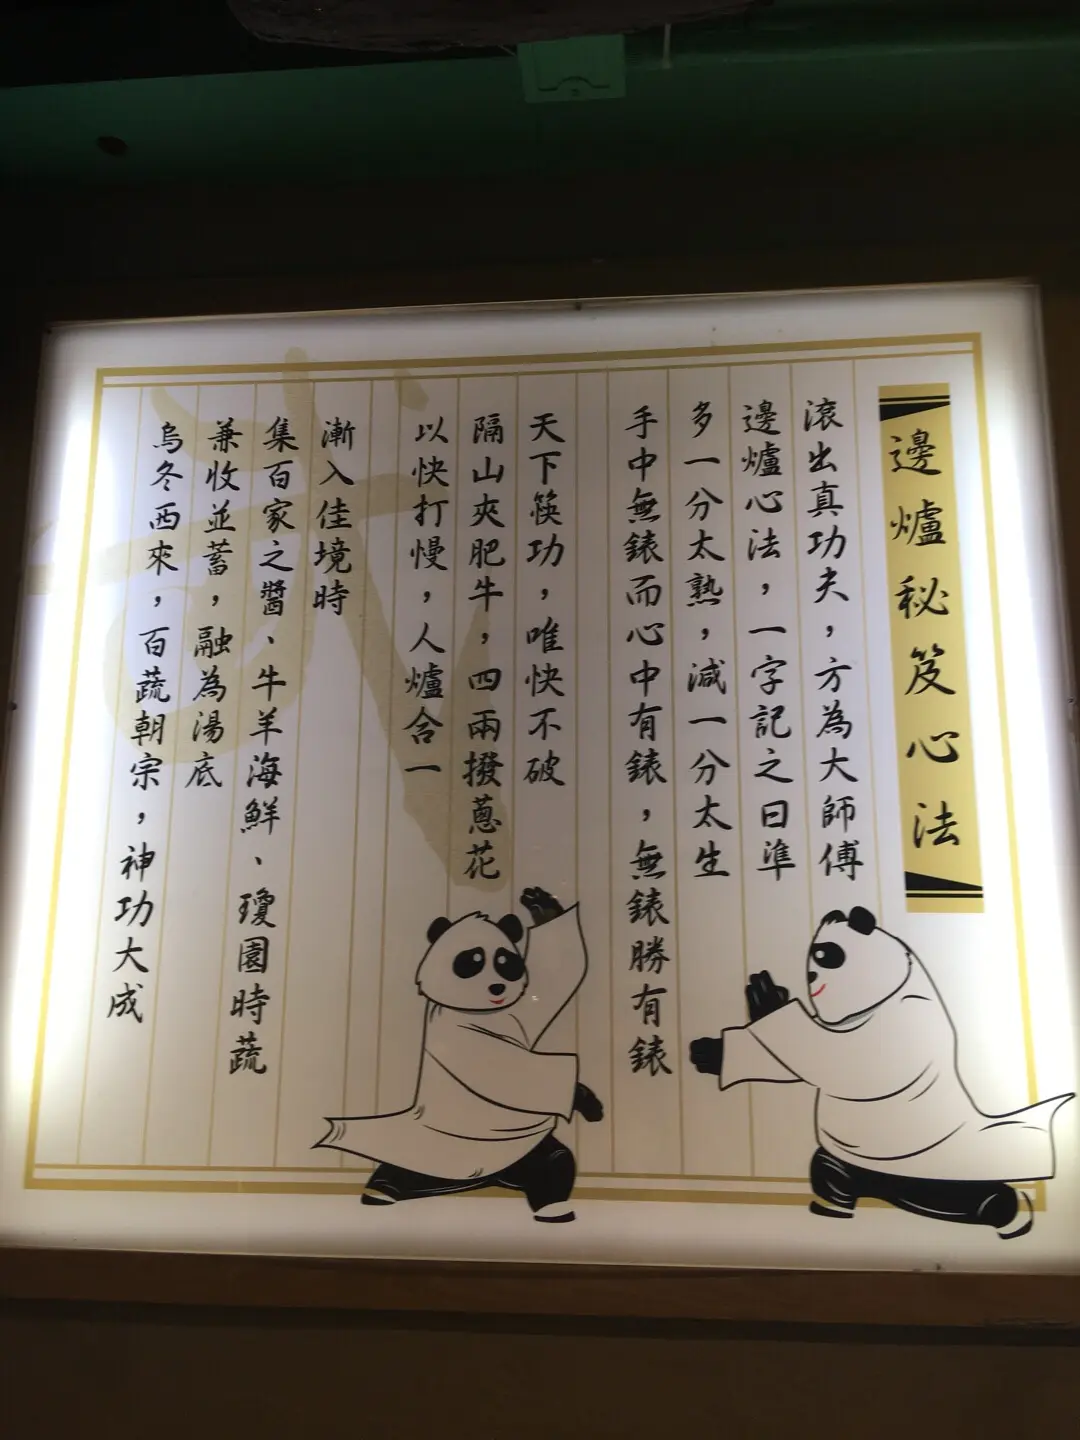 邊爐秘笈心法
滾出真功夫，方為大師傅
邊爐心法，一字記之曰準
多一分太熟，減一分太生
手中無錶而心中有錶，無錶勝有錶
天下筷功，唯快不破
隔山夾肥牛，四兩撥蔥花
以快打慢，人爐合一
漸入佳境時
集百家之醬、牛羊海鮮、瓊園時蔬
兼收並蓄，融為湯底
烏冬西來，百蔬朝宗，神功大成
武